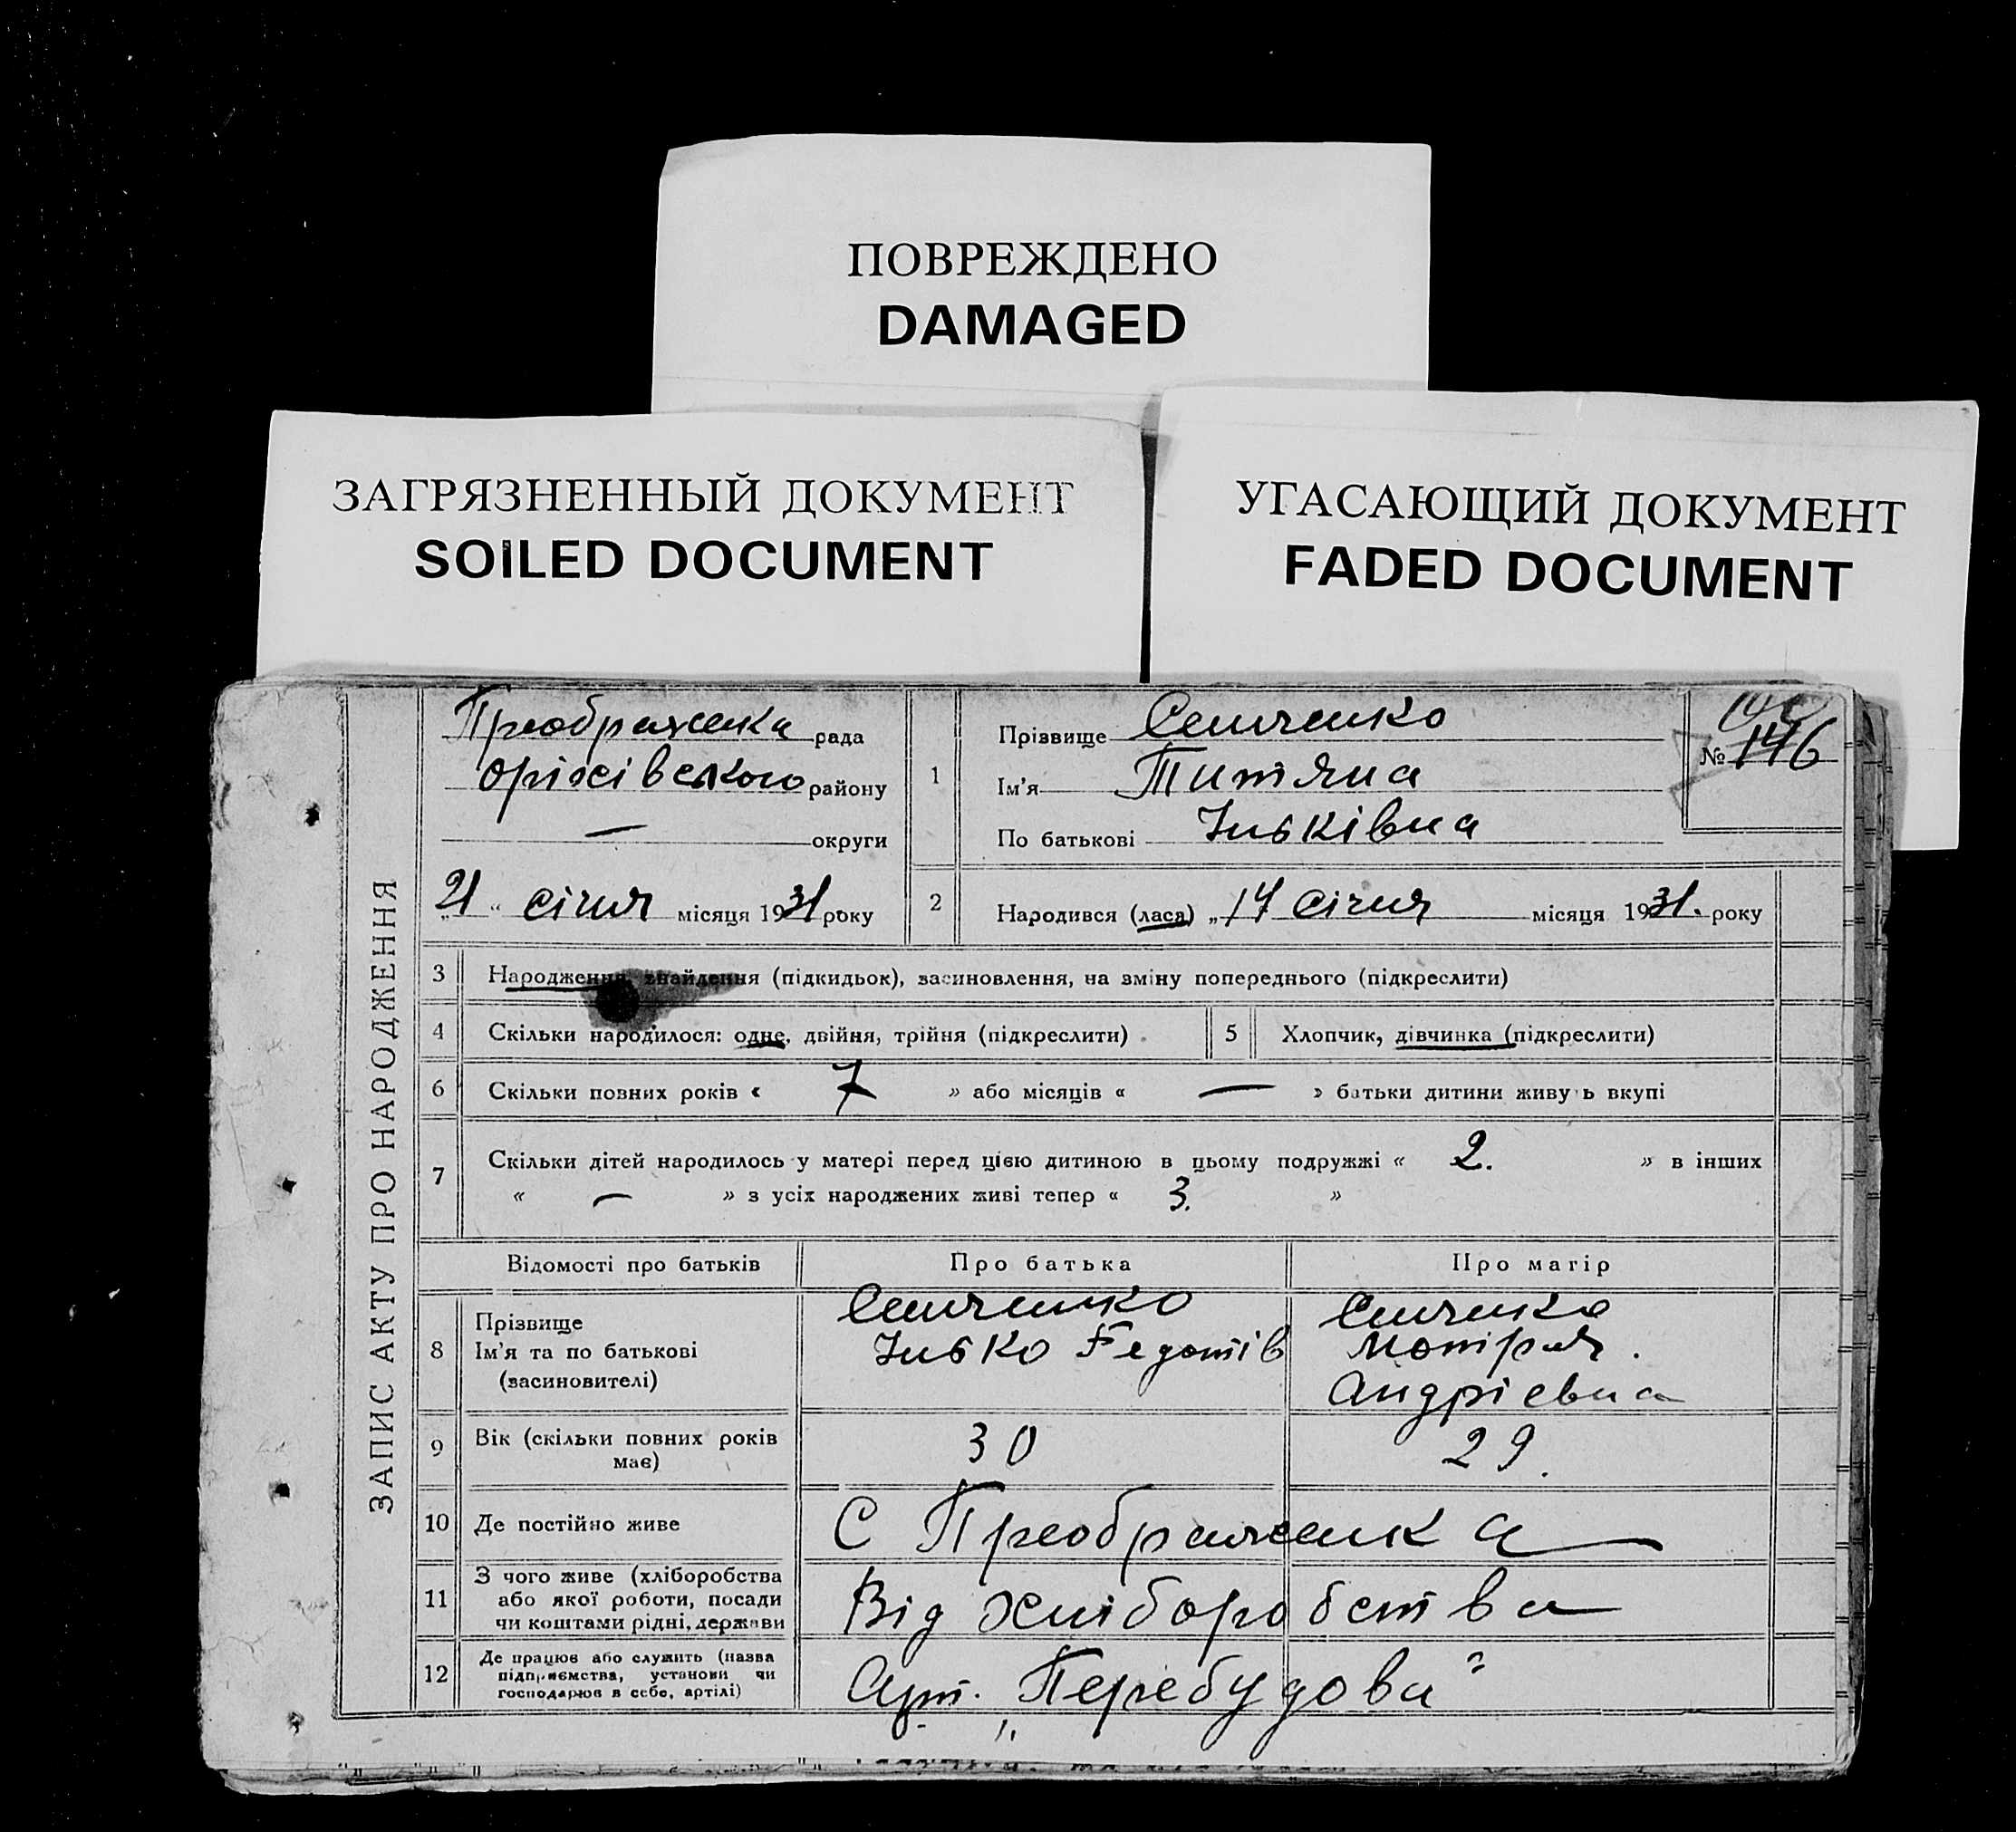 ПОВРЕЖДЕНО
DAMAGED
ЗАГРЯЗНЕННЫЙ ДОКУМЕНТ
SOILED DOCUMENT
УГАСАЮЩИЙ ДОКУМЕНТ
FADED DOCUMENT
ЗАПИС АКТУ ПРО НАРОДЖЕННЯ
Преображенка рада
Оріхівського району
— округи
„21“ січня місяця 1931 року
1
Прізвище Семченко
Ім'я Титяна
По батькові Ільківна
№ 146
2
Народився (лася) „14 січня місяця 1931. року
3 Народження, знайдення (підкидьок), засиновлення, на зміну попереднього (підкреслити)
4 Скільки народилося: одне, двійня, трійня (підкреслити)
5 Хлопчик, дівчинка (підкреслити)
6 Скільки повних років « 7 » або місяців « — » батьки дитини живуь вкупі
7 Скільки дітей народилось у матері перед цією дитиною в цьому подружжі « 2. » в інших
« — » з усіх народжених живі тепер « 3. »
Відомості про батьків Про батька Про матір
8 Прізвище
Ім'я та по батькові
(засиновителі)
Семченко
Ілько Федотів
Семченко
Мотря.
Андрієвна
9 Вік (скільки повних років
має)
30
29.
10 Де постійно живе С Преображенка
11 З чого живе (хліборобства
або якої роботи, посади
чи коштами рідні, держави
Від хліборобства
12 Де працює або служить (назва
підприємства, установи чи
господарює в себе, артілі)
Арт. „Перебудова"